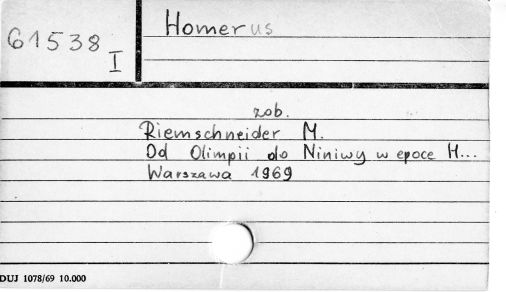 Homerus
61538
I
zob.
Riemschneider M.
Od Olimpii do Niniwy w epoce H...
Warszawa 1969
DUJ 1078/69 10.000